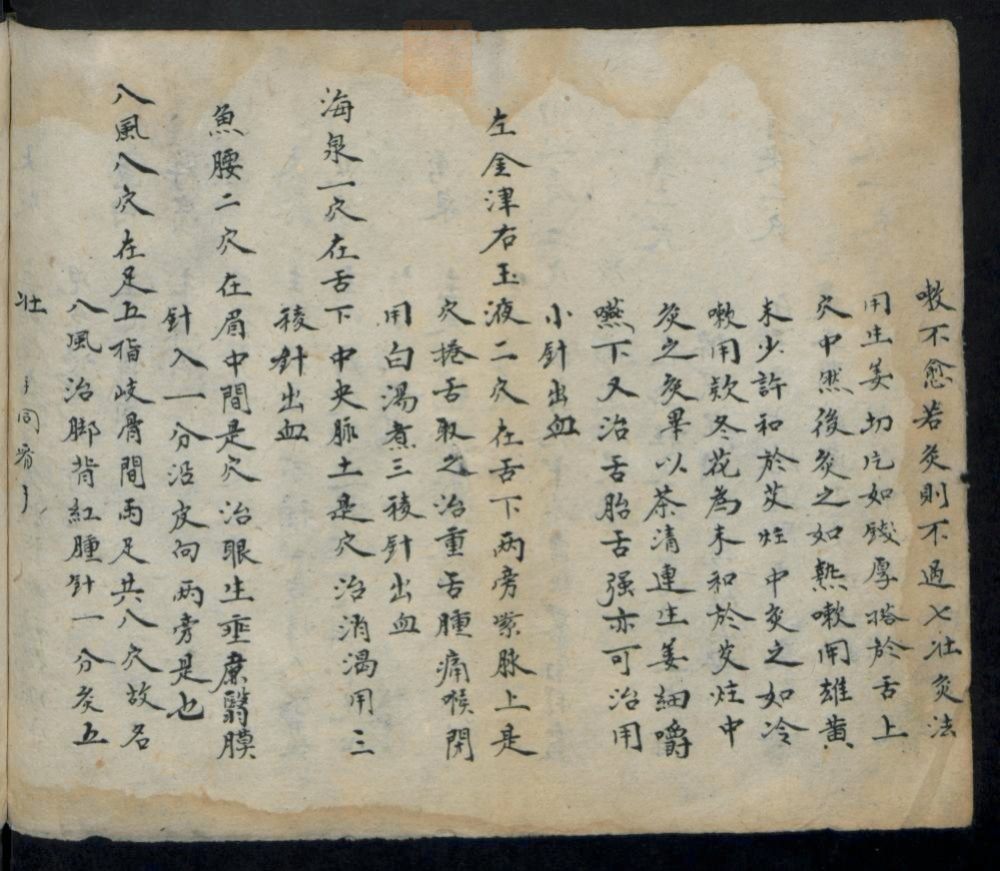 嗽不愈若灸則不過七壯灸法
用生姜切片如錢厚搭於舌上
穴中然後灸之如熱嗽用雄黄
末少許和於艾炷中灸之如冷
嗽用欵冬花為末和於艾炷中
灸之灸畢以茶清連生姜細嚼
嚥下又治舌胎舌强亦可治用
小針出血
左金津右玉液二穴在舌下兩旁紫脉上是
穴捲舌取之治重舌腫痛喉閉
用白湯煮三稜針出血
海泉一穴在舌下中央脈土是穴治消渴用三
稜針出血
魚腰二穴在眉中間是穴治眼生垂簾翳膜
針入一分沿皮向兩旁是也
八風八穴在足五指岐骨間兩足共八穴故名
八風治脚背紅腫針一分灸五
壯